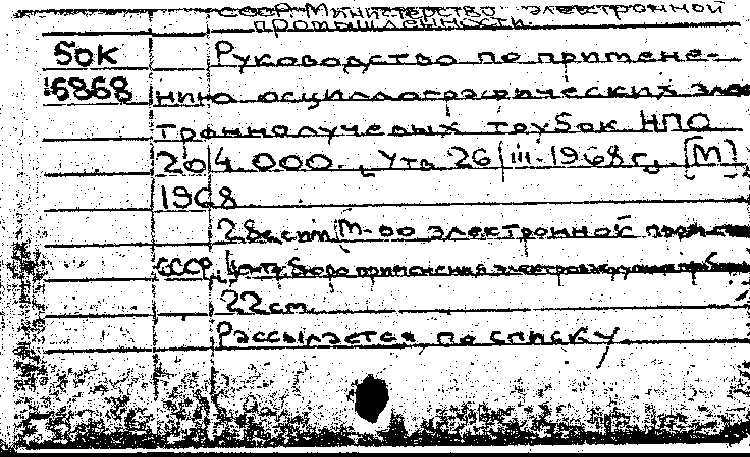 СССР. Министерство электронной
промышленности.
Бок Руководство по приме­не-
16868 нию осциллографических элек
троннолучевых трубок НПО
204.000. Утв. 26/III-1968 г. [М],
1968
28 с., [М-во электронной
СССР, Центр. бюро применения электровакуумных
22 см.
Рассылается по списку.